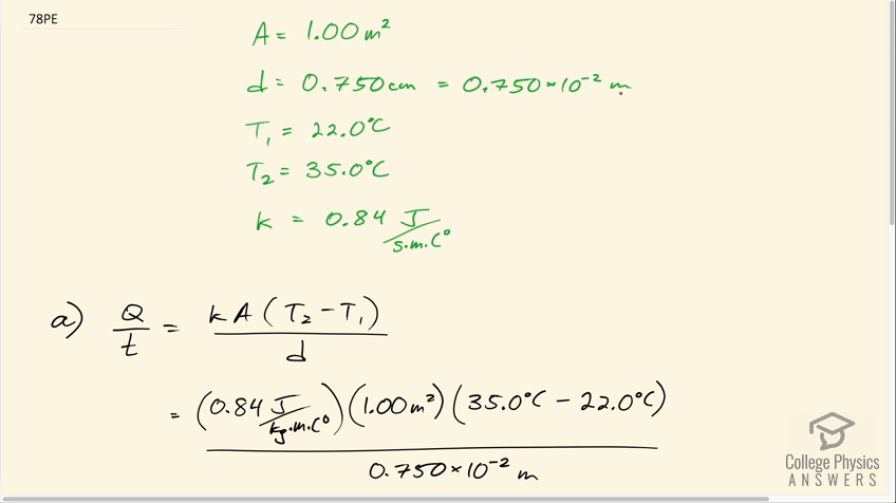 78PE
A = 1.00 m²
d = 0.750 cm = 0.750 × 10⁻² m
T₁ = 22.0°C
T₂ = 35.0°C
k = 0.84 J/s·m·C°
a) Q/t = kA(T₂ − T₁)/d
= (0.84 J/kg·m·C°)(1.00 m²)(35.0°C − 22.0°C)
0.750 × 10⁻² m
College Physics
ANSWERS